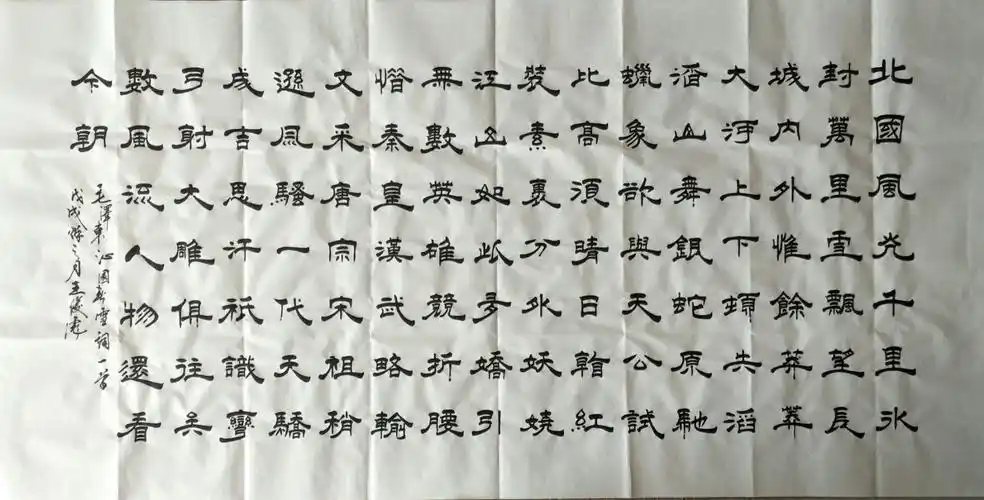 北國風光千里氷
封萬里雪飄望長
城内外惟餘莽莽
大河上下頓失滔
滔山舞銀蛇原馳
蠟象欲與天公試
比高須晴日看紅
裝素裹分外妖嬈
江山如此多嬌引
無數英雄競折腰
惜秦皇漢武略輸
文采唐宗宋祖稍
遜風騷一代天驕
成吉思汗祇識彎
弓射大雕俱往矣
數風流人物還看
今朝
毛澤東沁園春雪詞一首
戊戌之月王